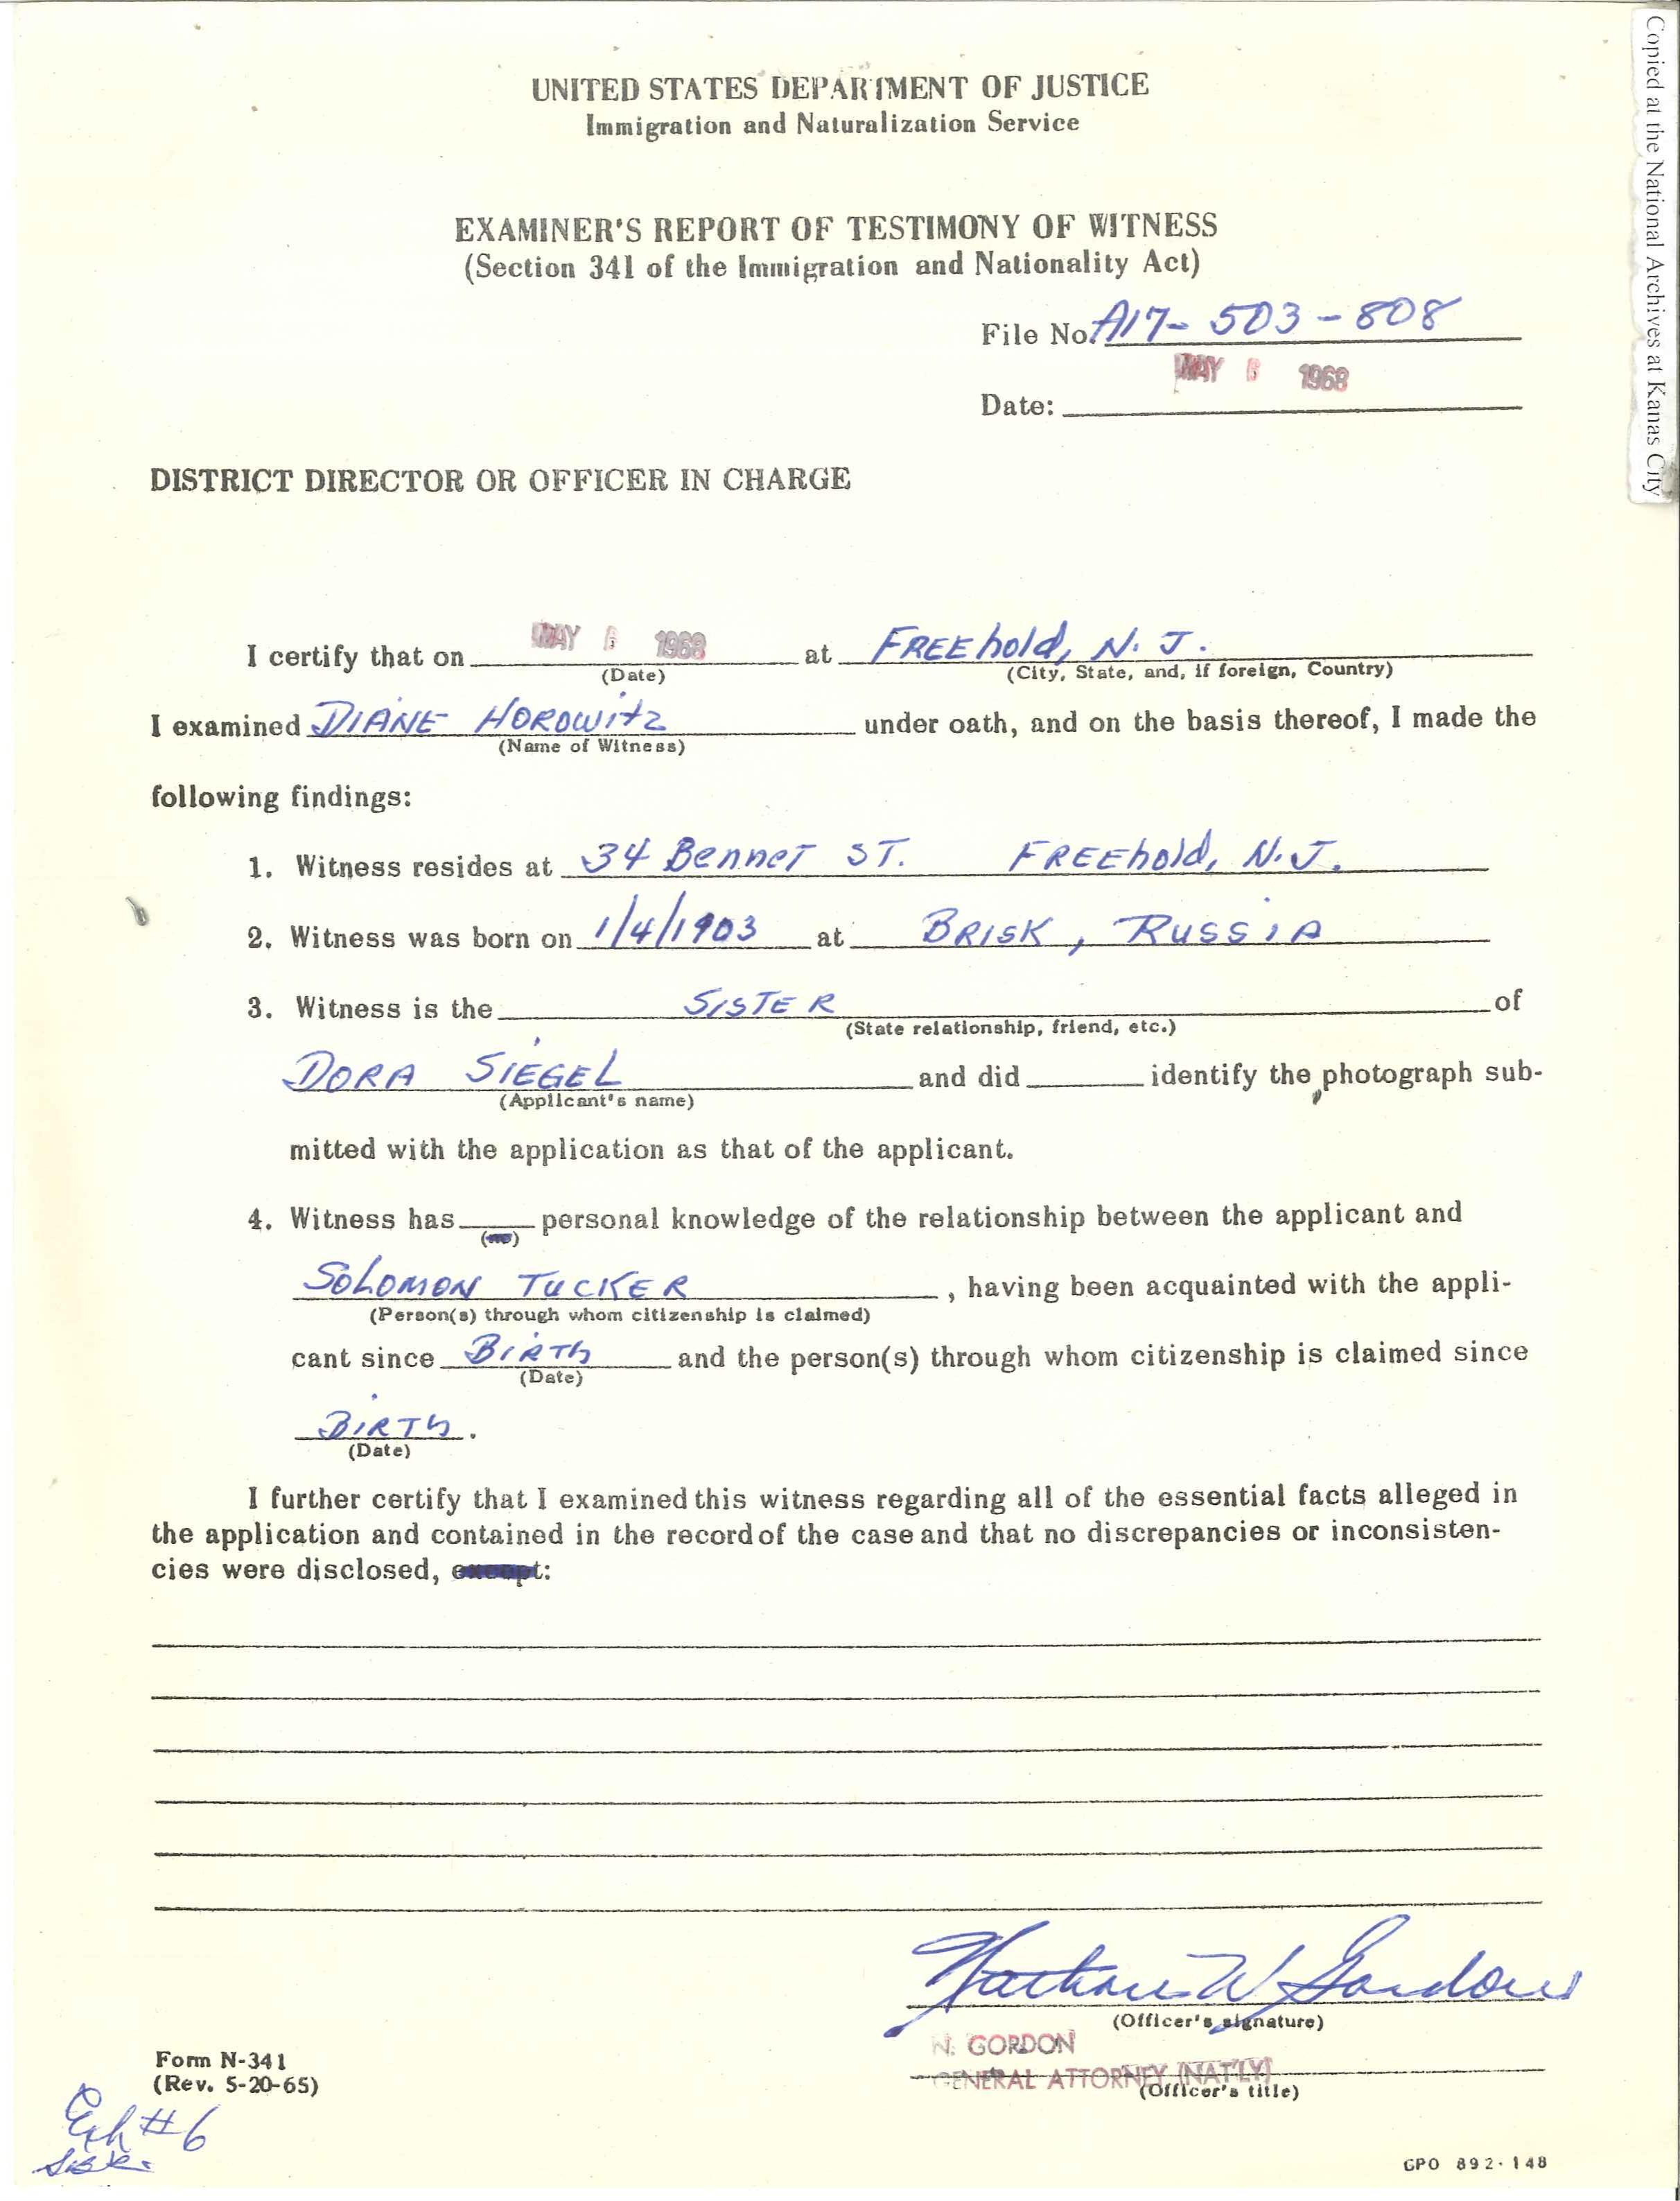 Copied at the National Archives at Kanas City
UNITED STATES DEPARTMENT OF JUSTICE
Immigration and Naturalization Service
EXAMINER'S REPORT OF TESTIMONY OF WITNESS
(Section 341 of the Immigration and Nationality Act)
File No. A17-503-808
MAY 1968
Date:
DISTRICT DIRECTOR OR OFFICER IN CHARGE
I certify that on MAY 1968 at FREEhold, N. J.
(Date) (City, State, and, if foreign, Country)
I examined DIANE HOROWITZ under oath, and on the basis thereof, I made the
(Name of Witness)
following findings:
1. Witness resides at 34 Bennet ST. FREEhold, N.J.
2. Witness was born on 1/4/1903 at BRISK, RUSSIA
3. Witness is the SISTER of
(State relationship, friend, etc.)
DORA SIEGEL and did identify the photograph sub-
(Applicant's name)
mitted with the application as that of the applicant.
4. Witness has personal knowledge of the relationship between the applicant and
SOLOMON TUCKER, having been acquainted with the appli-
(Person(s) through whom citizenship is claimed)
cant since BIRTh and the person(s) through whom citizenship is claimed since
(Date)
BIRTh.
(Date)
I further certify that I examined this witness regarding all of the essential facts alleged in
the application and contained in the record of the case and that no discrepancies or inconsisten-
cies were disclosed, except:
Nathan W Gordon
(Officer's signature)
N. GORDON
GENERAL ATTORNEY (NAT'LY)
(Officer's title)
Form N-341
(Rev. 5-20-65)
Exh #6
GPO 892-148